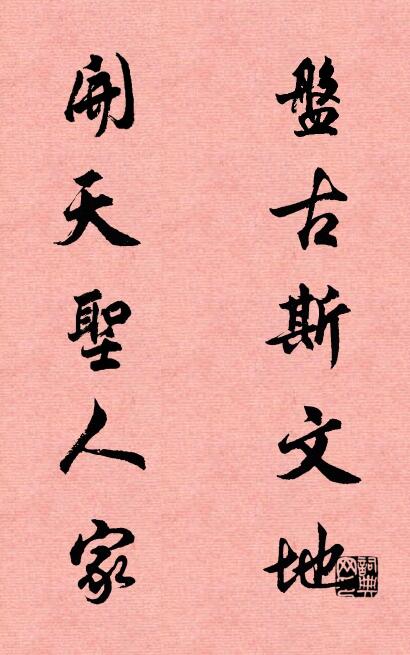 盤古斯文地
開天聖人家
詞典网